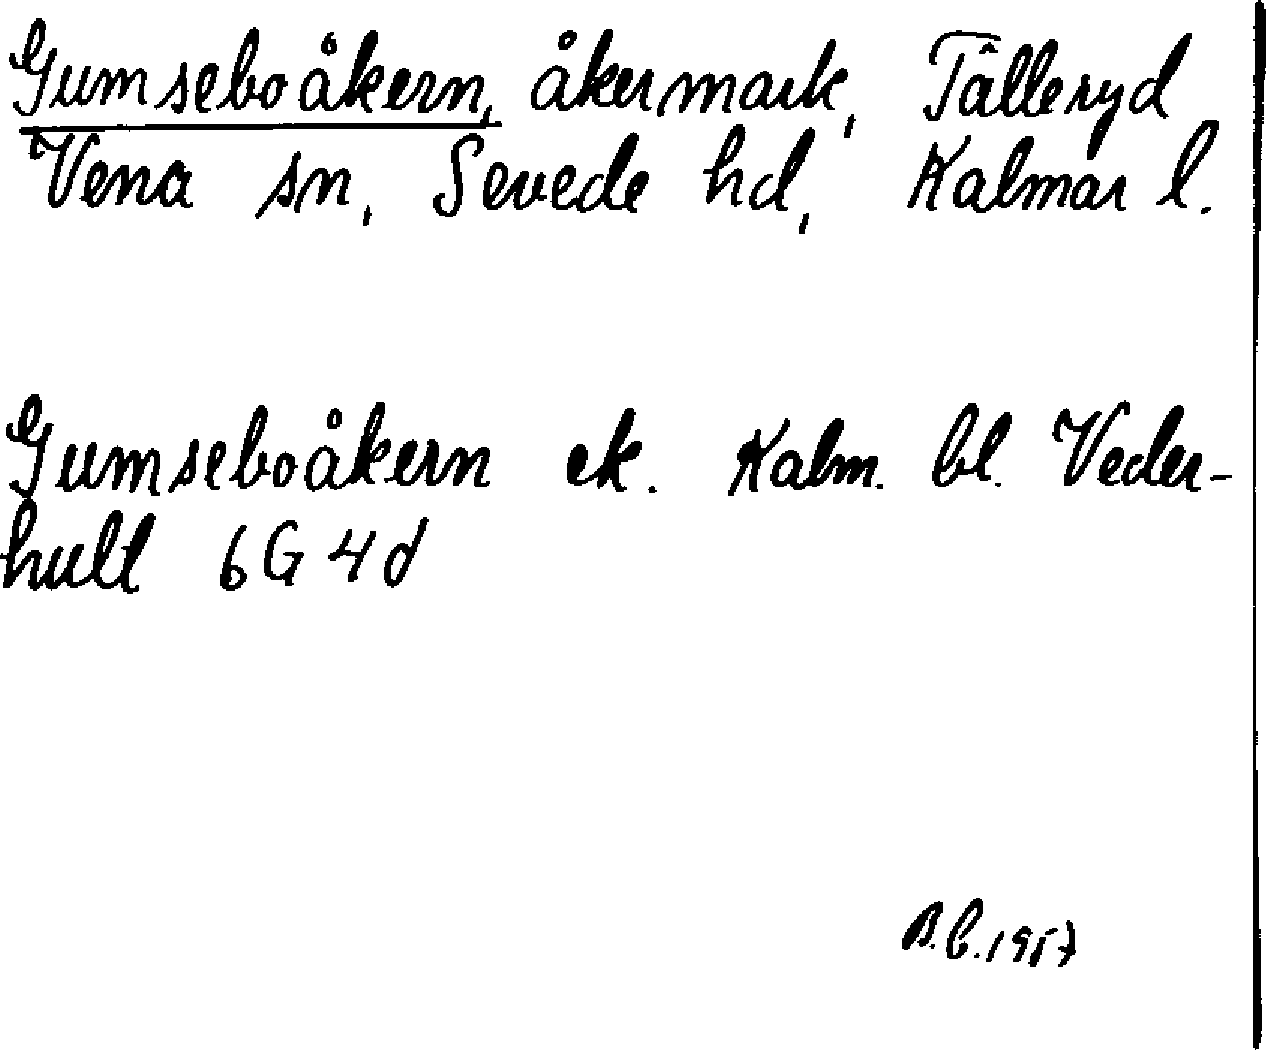 Gumseboåkern, åkermark, Tälleryd
Vena sn, Sevede hd, Kalmar l.
Gumseboåkern ek. Kalm. bl. Veder-
hult 6G4d
B.C. 1957